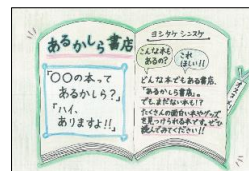 あるかしら書店
「〇〇の本って
あるかしら?」
「ハイ、
ありますよ!!」
ヨシタケ シンスケ
こんな本も
あるの?
これ
ほしい!!
どんな本でもある書店、
「あるかしら書店」。
でもまだない本も!?
たくさんの面白い本やグッズ
を見つけられる本です。ぜひ
読んでみてください!!